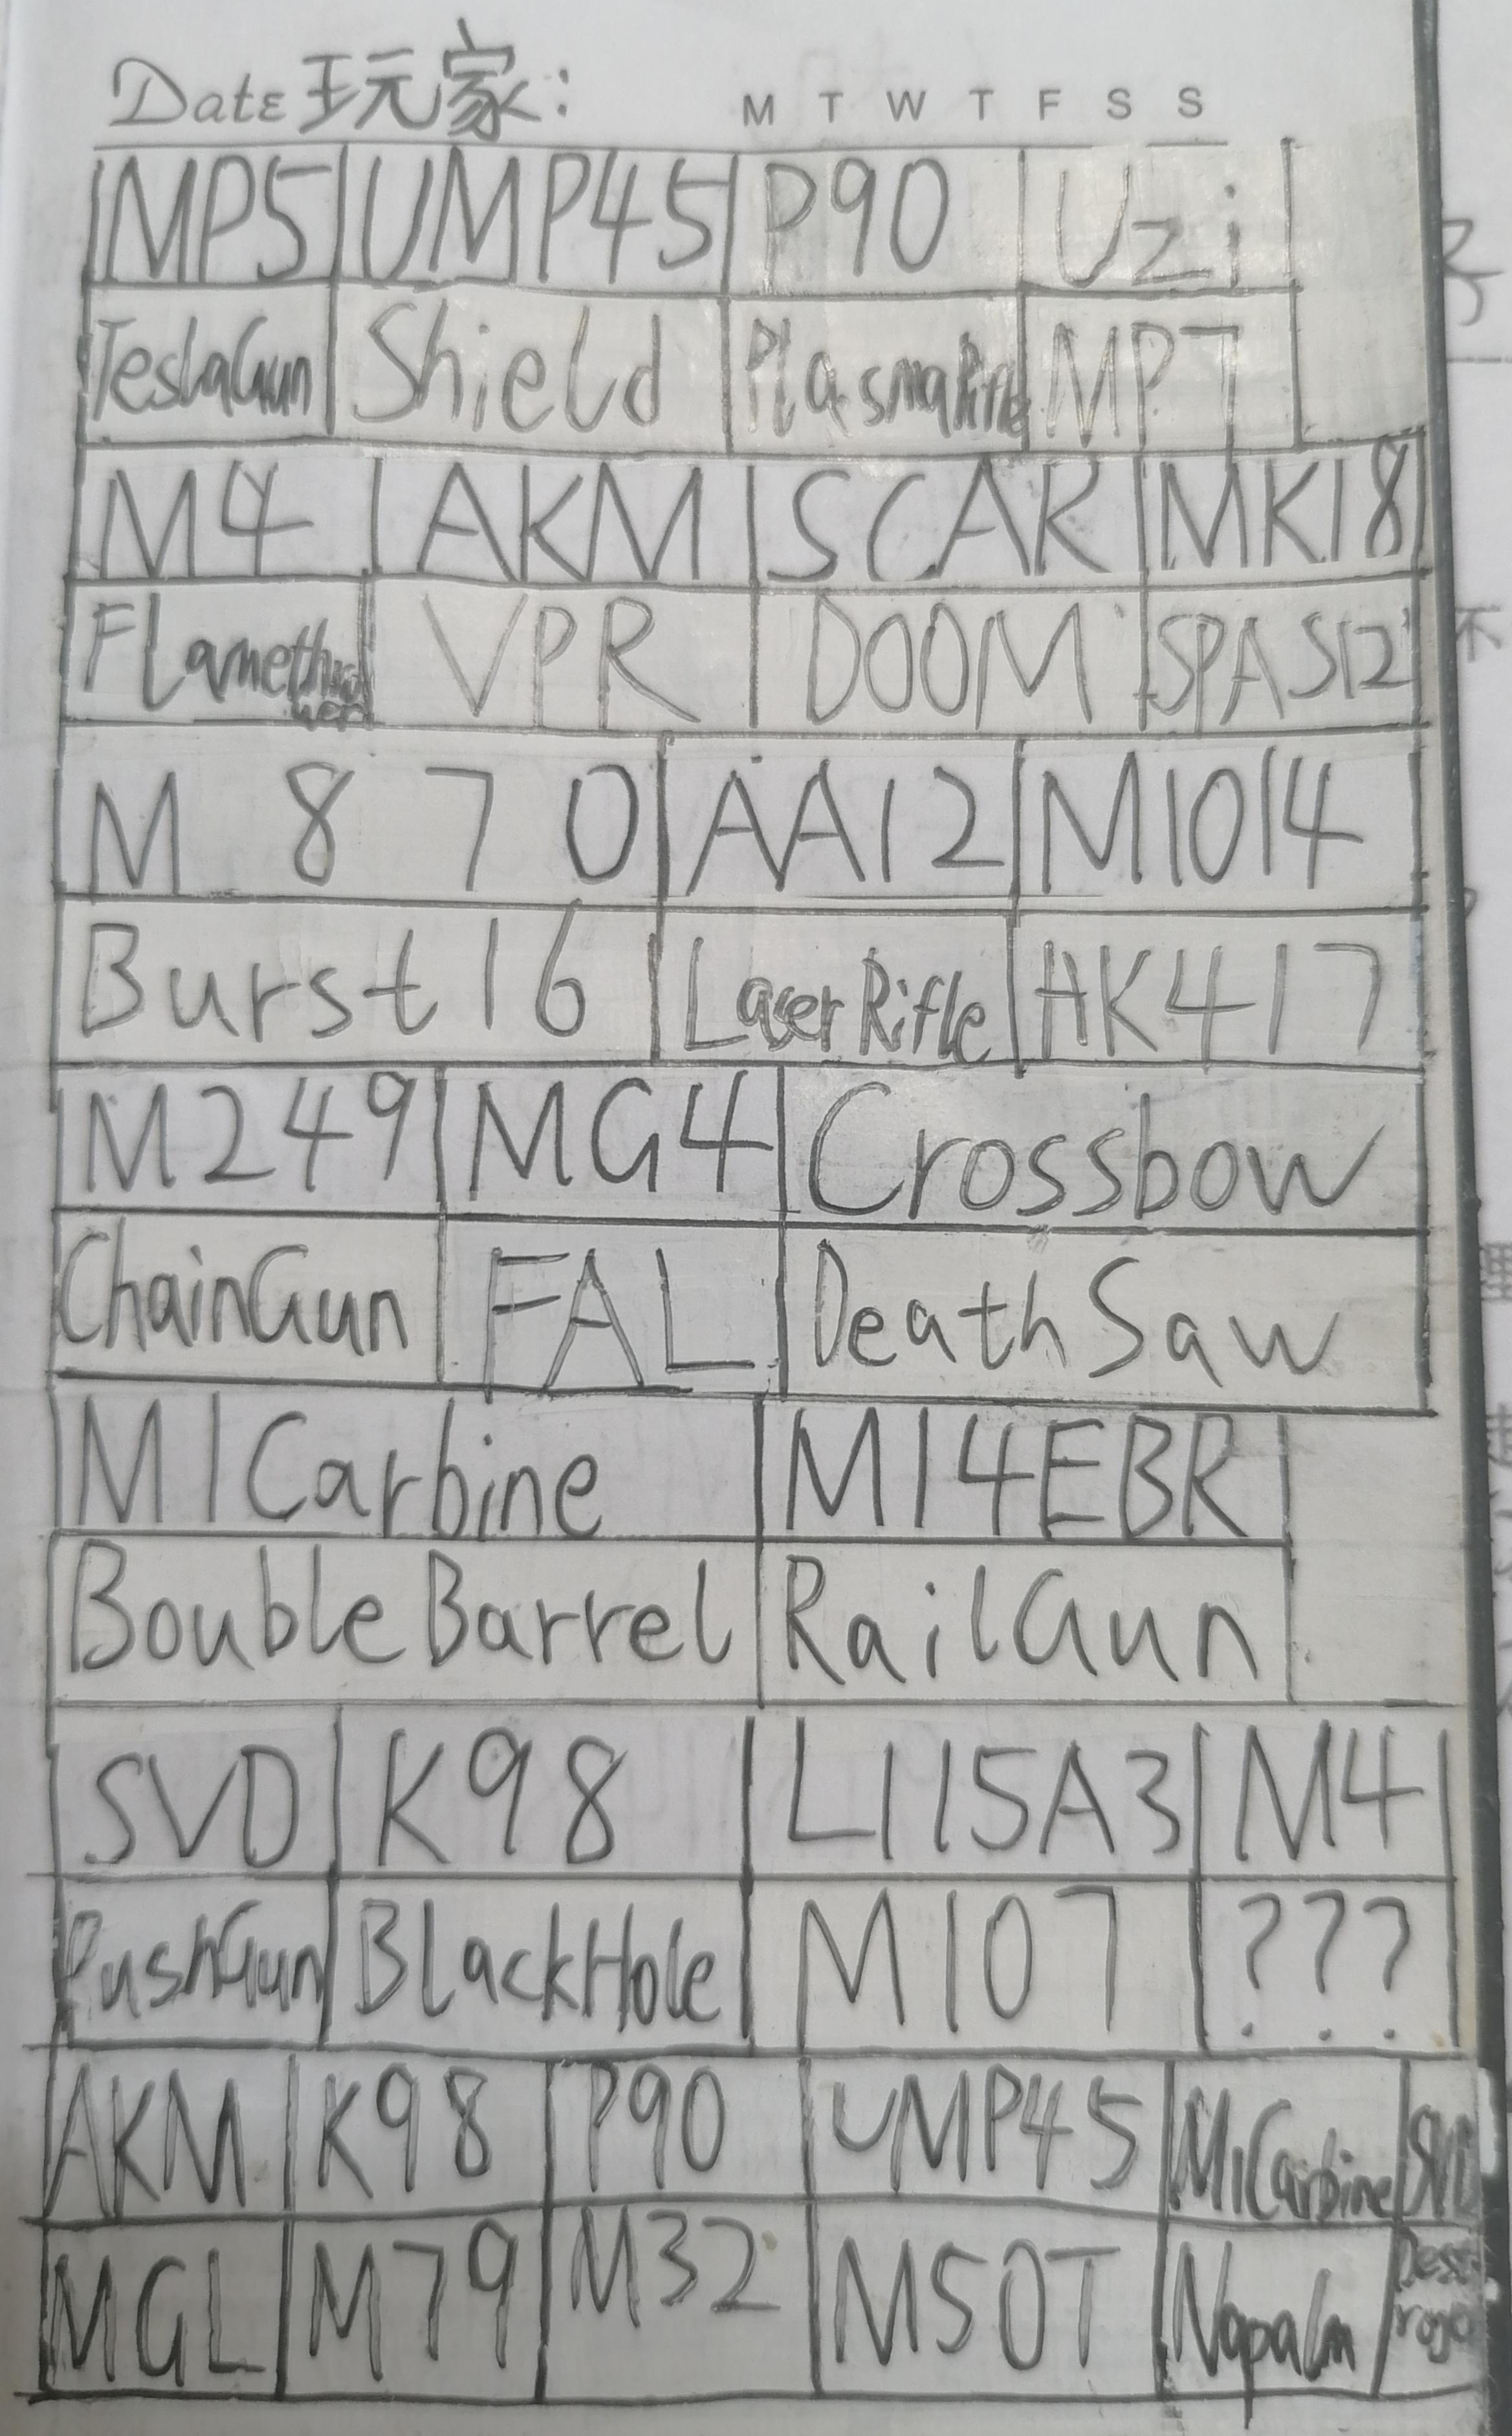 Date 玩家: M T W T F S S
MP5 UMP45 P90 Uzi
TeslaGun Shield PlasmaRifle MP7
M4 AKM SCAR MK18
Flamethrower VPR DOOM SPAS12
M870 AA12 M1014
Burst16 Laser Rifle HK417
M249 MG4 Crossbow
ChainGun FAL Death Saw
M1Carbine M14EBR
Bouble Barrel RailGun
SVD K98 L115A3 M4
PushGun BlackHole M107 ???
AKM K98 P90 UMP45 M1Carbine SVD
MGL M79 M32 M50T Napalm